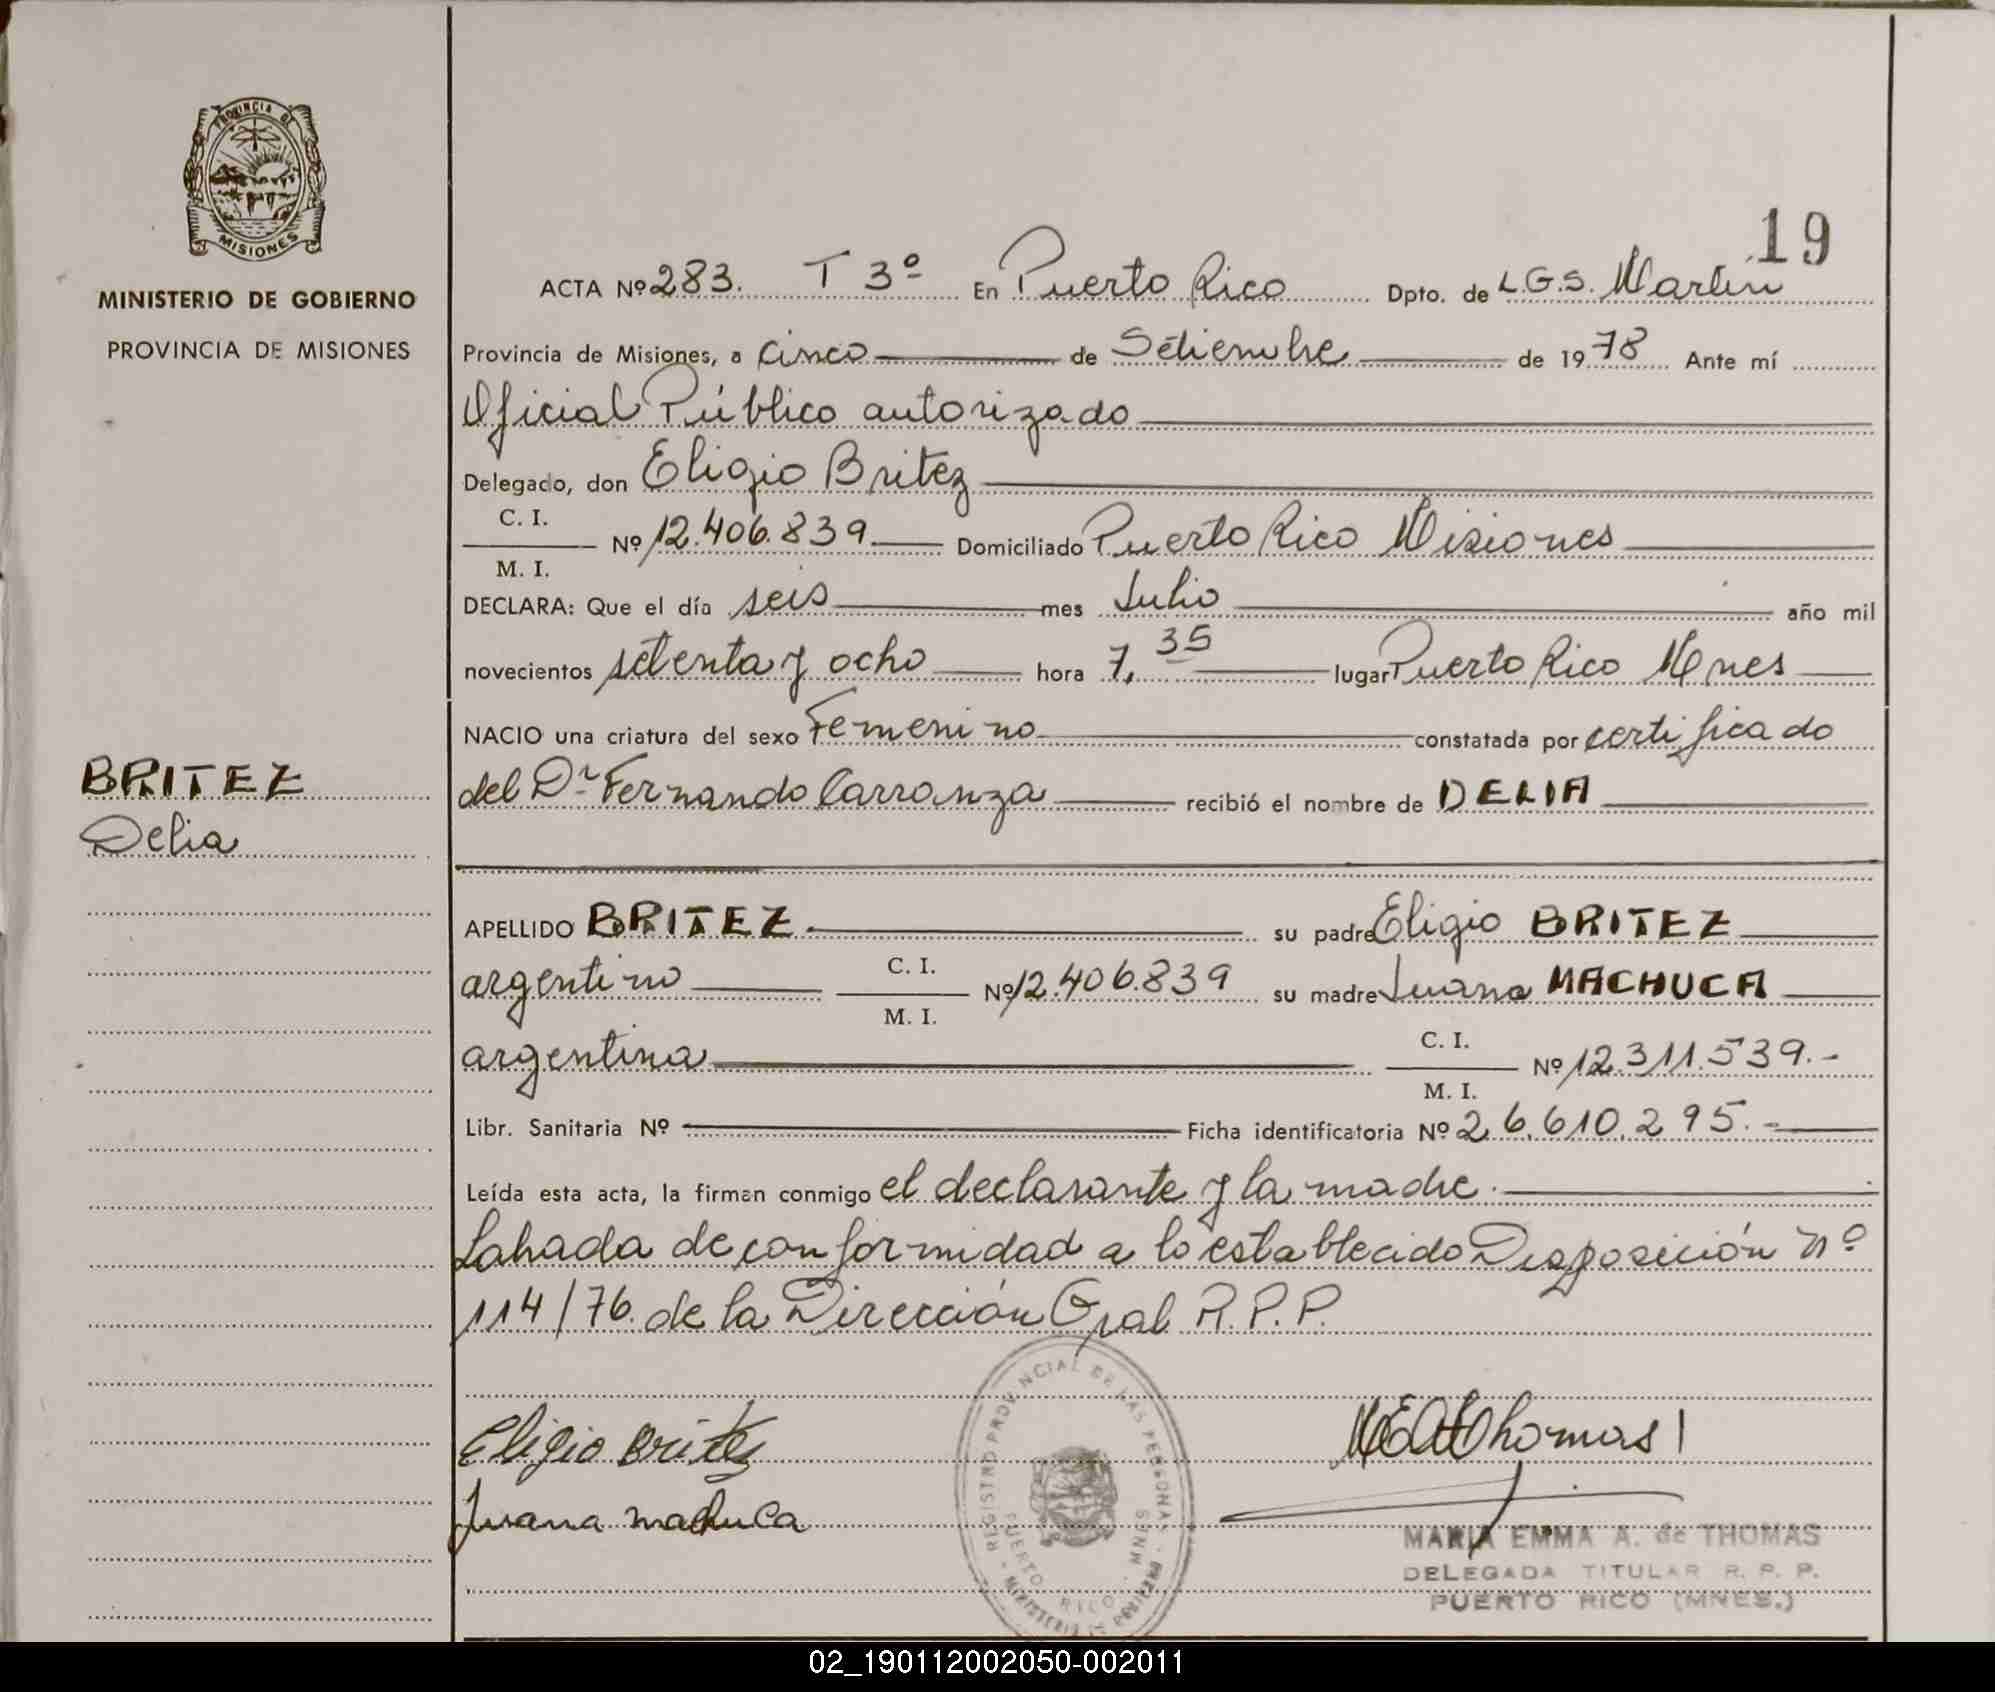 PROVINCIA DE
MISIONES
MINISTERIO DE GOBIERNO
PROVINCIA DE MISIONES
BRITEZ
Delia
19
ACTA Nº 283. T 3º En Puerto Rico Dpto. de L.G.S. Martín
Provincia de Misiones, a cinco de Setiembre de 1978 Ante mí
Oficial Público autorizado
Delegado, don Eligio Britez
C. I.
Nº 12.406.839 Domiciliado Puerto Rico Misiones
M. I.
DECLARA: Que el día seis mes Julio año mil
novecientos setenta y ocho hora 7,35 lugar Puerto Rico Mnes
NACIO una criatura del sexo Femenino constatada por certificado
del Dr Fernando Carranza recibió el nombre de DELIA
APELLIDO BRITEZ su padre Eligio BRITEZ
argentino C. I. Nº 12.406.839 su madre Juana MACHUCA
M. I.
argentina C. I. Nº 12.311.539.-
M. I.
Libr. Sanitaria Nº Ficha identificatoria Nº 26.610.295.-
Leída esta acta, la firman conmigo el declarante y la madre.
Labrada de conformidad a lo establecido Disposición nº
114/76 de la Dirección Gral R.P.P.
Eligio Britez
Juana machuca
REGISTRO PROVINCIAL DE LAS PERSONAS
PUERTO RICO MNES
Thomas
MARIA EMMA A. de THOMAS
DELEGADA TITULAR R. P. P.
PUERTO RICO (MNES.)
02_190112002050-002011